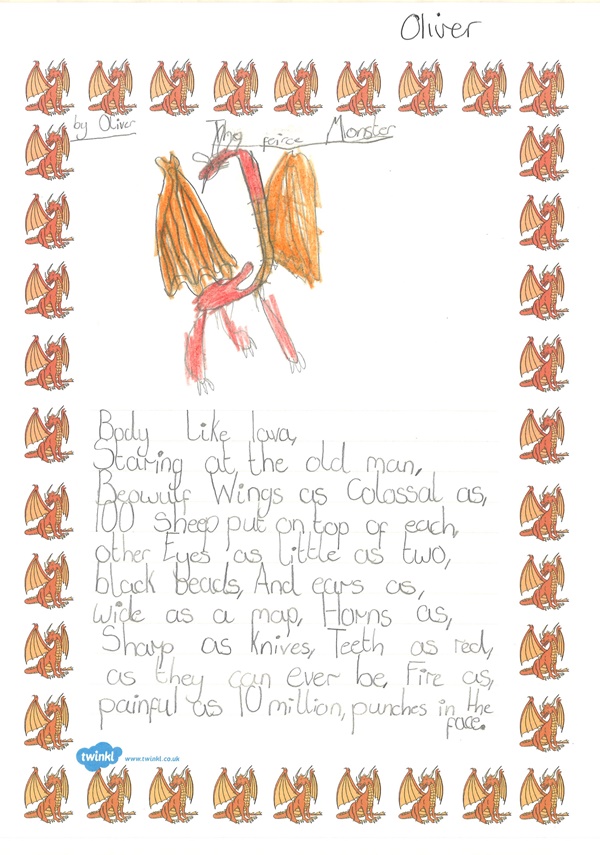 Oliver
by Oliver
The feirce Monster
Body Like lava,
Staring at the old man,
Beowulf Wings as Colossal as,
100 Sheep put on top of each,
other Eyes as little as two,
black beads, And ears as,
wide as a map, Horns as,
Sharp as Knives, Teeth as red,
as they can ever be, Fire as,
painful as 10 million, punches in the
face.
twinkl www.twinkl.co.uk